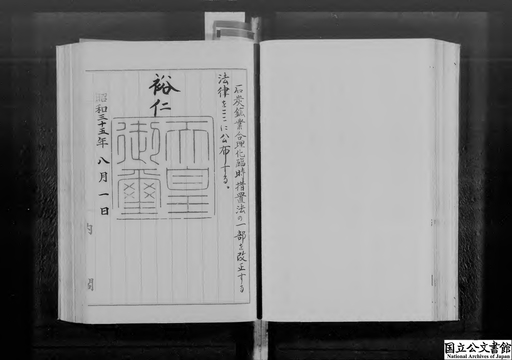 石炭鉱業合理化臨時措置法の一部を改正する
法律をここに公布する。
裕仁
天皇
御璽
昭和三十五年八月一日
内閣
国立公文書館
National Archives of Japan